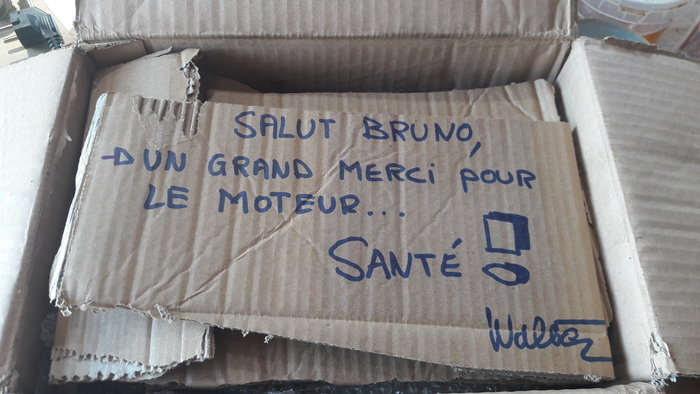 SALUT BRUNO,
→ UN GRAND MERCI POUR
LE MOTEUR...
SANTÉ !
Walter